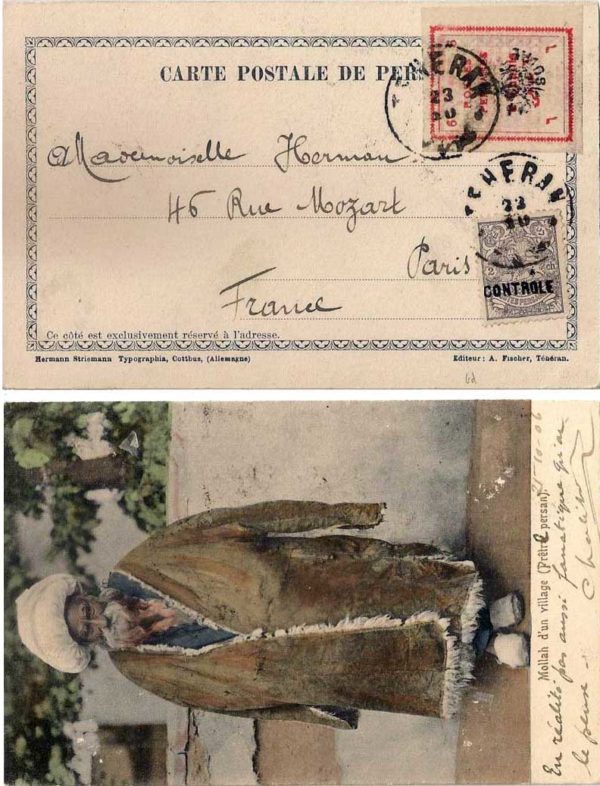 CARTE POSTALE DE PER
TEHERAN
23
Mademoiselle Herman
46 Rue Mozart
Paris
France
TEHERAN
23
2 ch
CONTROLE
Ce côté est exclusivement réservé à l'adresse.
Hermann Striemann Typographia, Cottbus, (Allemagne)
Editeur: A. Fischer, Téhéran.
Mollah d'un village (Prêtre persan).
10-06
En réalité pas aussi fanatique qu'on
le pense.